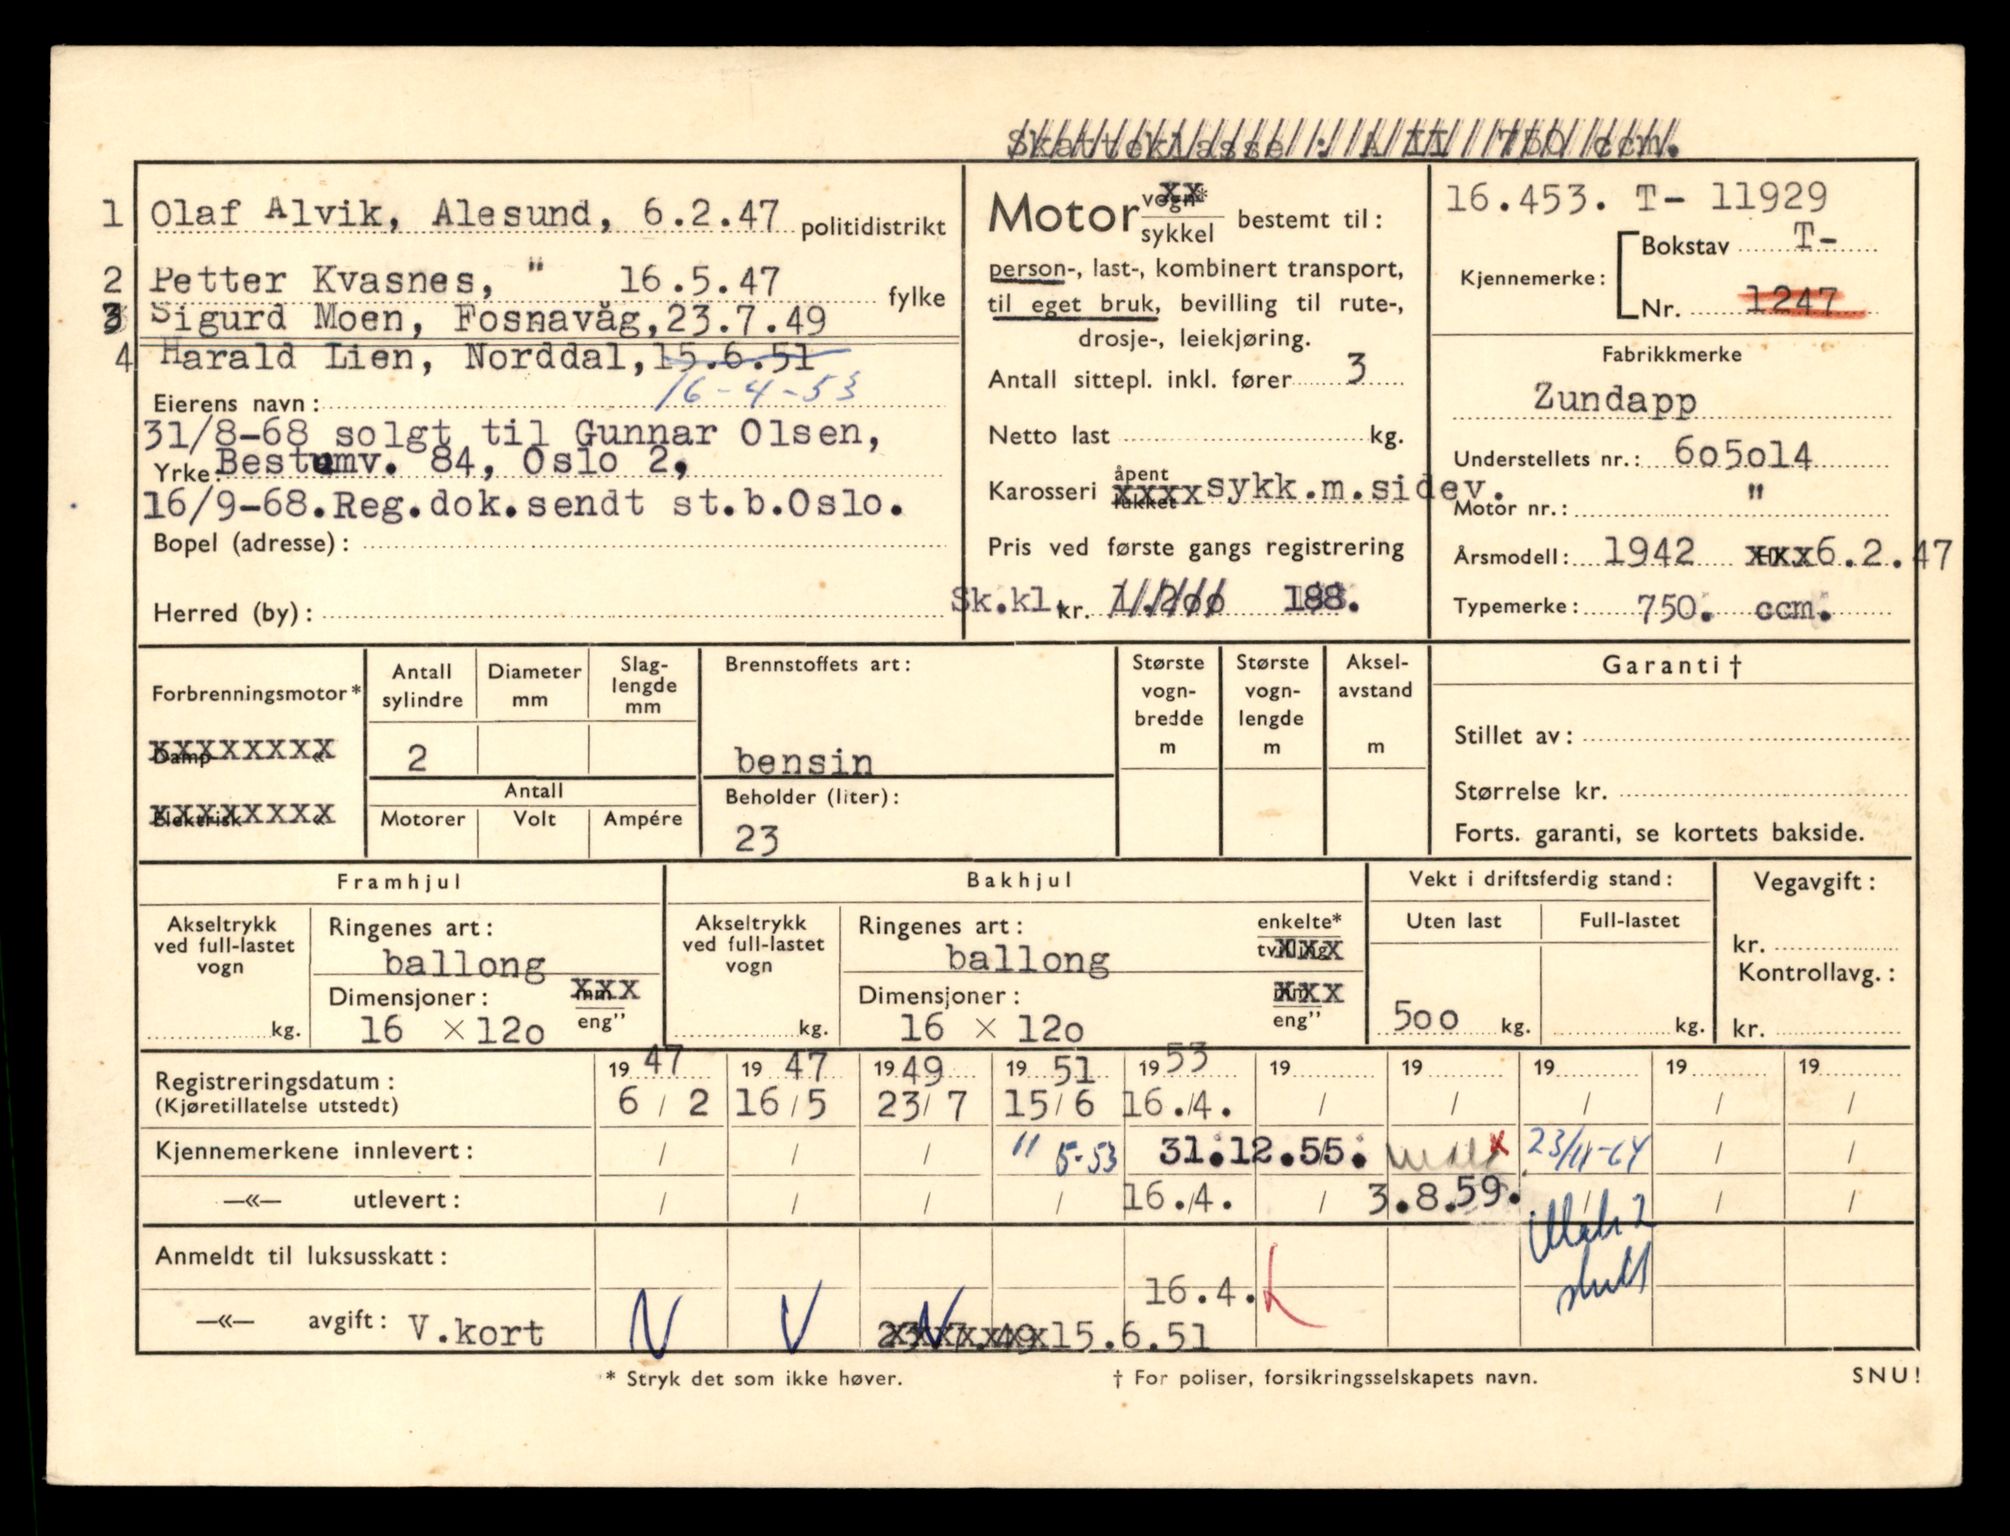 Skatteklasse : A II 750 ccm.
1 Olaf Alvik, Alesund, 6.2.47 politidistrikt
2 Petter Kvasnes, " 16.5.47 fylke
3 Sigurd Moen, Fosnavåg, 23.7.49
4 Harald Lien, Norddal, 15.6.51
Eierens navn: 16-4-53
31/8-68 solgt til Gunnar Olsen,
Yrke: Bestumv. 84, Oslo 2,
16/9-68. Reg.dok.sendt st.b.Oslo.
Bopel (adresse):
Herred (by):
Motor vogn* sykkel bestemt til:
person-, last-, kombinert transport,
til eget bruk, bevilling til rute-,
drosje-, leiekjøring.
Antall sittepl. inkl. fører 3
Netto last kg.
Karosseri åpent lukket xxxx sykk.m.sidev.
Pris ved første gangs registrering
Sk.kl. kr. 1.200 188.
16.453. T- 11929
Kjennemerke: Bokstav T-
Nr. 1247
Fabrikkmerke
Zundapp
Understellets nr.: 605014
Motor nr.: "
Årsmodell: 1942 xxx 6.2.47
Typemerke: 750. ccm.
Forbrenningsmotor*
Damp «
Elektrisk «
Antall sylindre
Diameter mm
Slag-lengde mm
2
Antall
Motorer Volt Ampére
Brennstoffets art:
bensin
Beholder (liter):
23
Største vogn-bredde m
Største vogn-lengde m
Aksel-avstand m
Garanti †
Stillet av:
Størrelse kr.
Forts. garanti, se kortets bakside.
Framhjul
Akseltrykk ved full-lastet vogn
kg.
Ringenes art:
ballong
Dimensjoner: mm xxx eng"
16 × 120
Bakhjul
Akseltrykk ved full-lastet vogn
kg.
Ringenes art: enkelte* tvilling xxx
ballong
Dimensjoner: mm xxx eng"
16 × 120
Vekt i driftsferdig stand:
Uten last Full-lastet
500 kg. kg.
Vegavgift:
kr.
Kontrollavg.:
kr.
Registreringsdatum: 19 47 19 47 19 49 19 51 19 53 19 19 19 19 19
(Kjøretillatelse utstedt) 6 / 2 16/5 23/ 7 15/ 6 16./4. / / / / /
Kjennemerkene innlevert: / / / 11 5-53 31.12.55. x 23/11-64 / /
—«— utlevert: / / / / 16./4. / 3.8.59. / / /
Anmeldt til luksusskatt:
16.4.
—«— avgift: V.kort 23.7.49 15.6.51
* Stryk det som ikke høver.
† For poliser, forsikringsselskapets navn.
SNU!